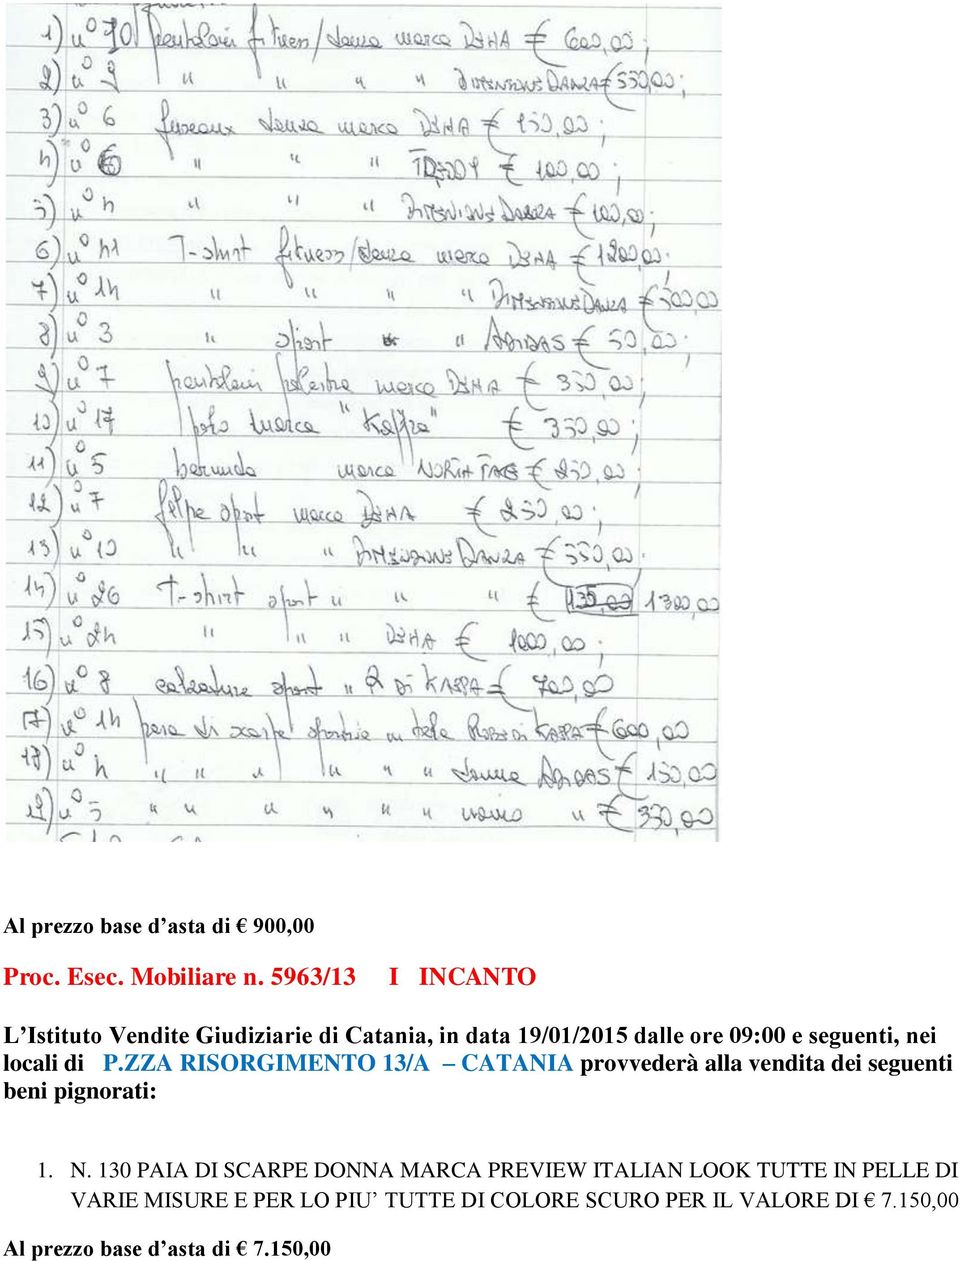 1) n° pantaloni fitness/danza marca DEHA € 600,00;
2) n° 9 " " " " DIMENSIONE DANZA € 550,00;
3) n° 6 fuseaux danza marca DEHA € 150,00;
4) n° 6 " " " € 100,00;
5) n° 4 " " " DIMENSIONE DANZA € 100,00;
6) n° 41 T-shirt fitness/danza marca DEHA € 1200,00;
7) n° 14 " " " " DIMENSIONE DANZA € 500,00
8) n° 3 " sport " ADIDAS € 50,00;
9) n° 7 pantaloni palestra marca DEHA € 350,00;
10) n° 17 polo marca "Kappa" € 350,00;
11) n° 5 bermuda marca NORTH € 250,00;
12) n° 7 felpe sport marca DEHA € 250,00;
13) n° 10 " " " DIMENSIONE DANZA € 550,00
14) n° 26 T-shirt sport " " " € 1300,00
15) n° 24 " " " DEHA € 1000,00;
16) n° 8 calzature sport " R DI KAPPA € 700,00
17) n° 14 paia di scarpe sportive in tela ROBE DI KAPPA € 600,00
18) n° 4 " " " " " " donna ADIDAS € 150,00
19) n° 5 " " " " " " uomo " € 350,00
Al prezzo base d’asta di € 900,00
Proc. Esec. Mobiliare n. 5963/13 I INCANTO
L’Istituto Vendite Giudiziarie di Catania, in data 19/01/2015 dalle ore 09:00 e seguenti, nei
locali di P.ZZA RISORGIMENTO 13/A – CATANIA provvederà alla vendita dei seguenti
beni pignorati:
1. N. 130 PAIA DI SCARPE DONNA MARCA PREVIEW ITALIAN LOOK TUTTE IN PELLE DI
VARIE MISURE E PER LO PIU’ TUTTE DI COLORE SCURO PER IL VALORE DI € 7.150,00
Al prezzo base d’asta di € 7.150,00